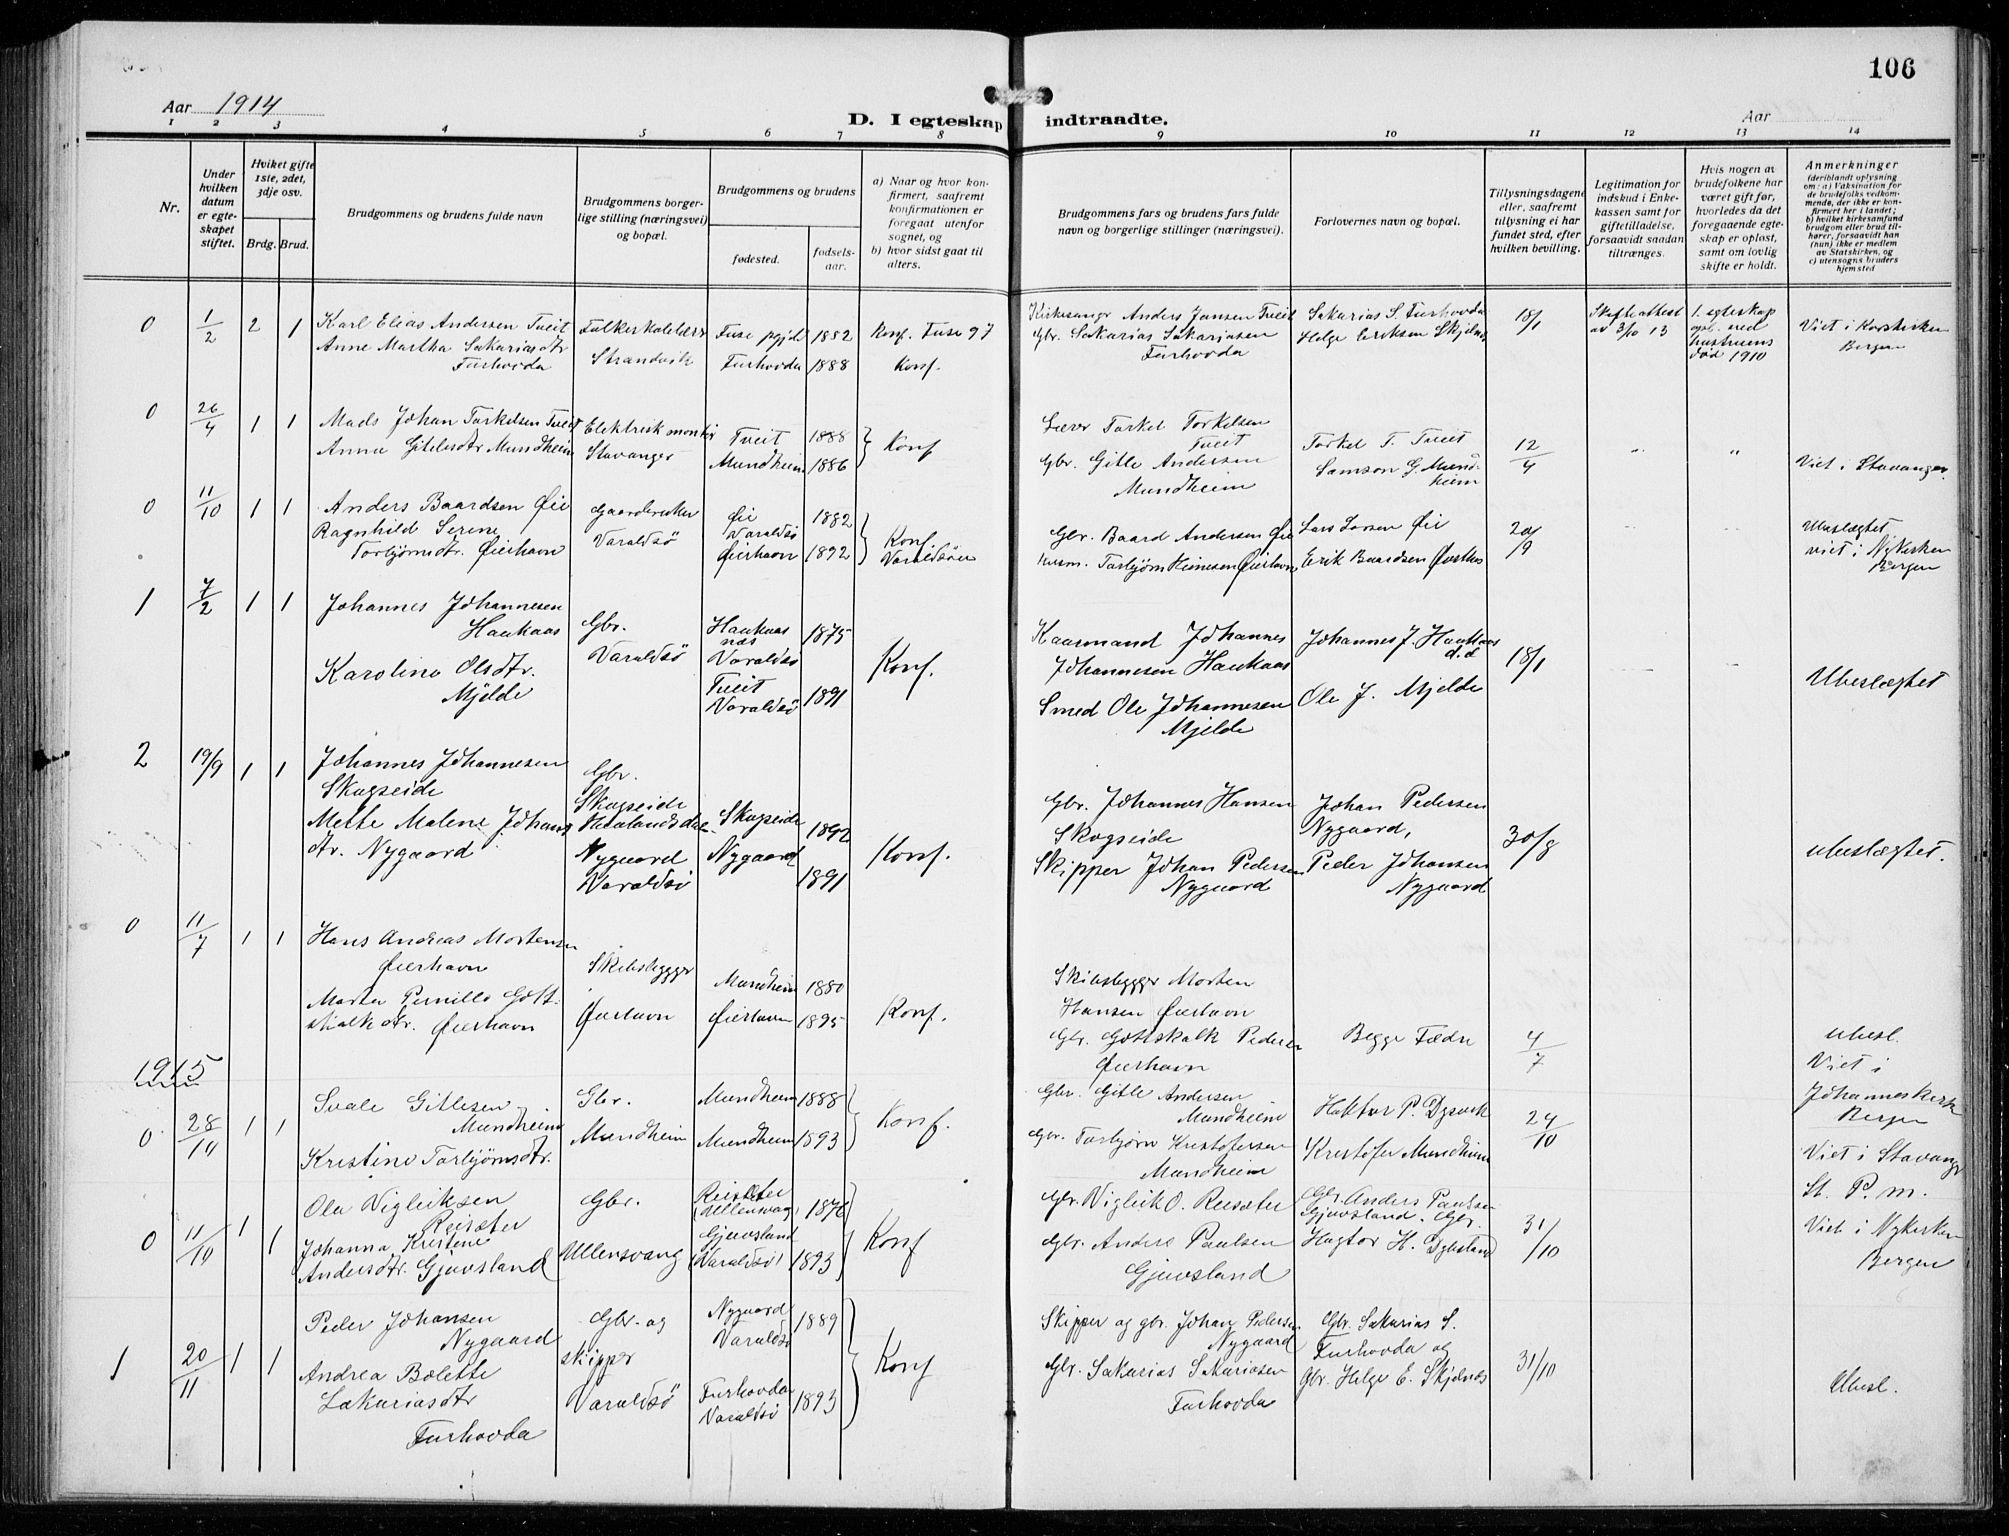 106
Aar 1914
D. I egteskap indtraadte.
Aar
1 2 3 4 5 6 7 8 9 10 11 12 13 14
Nr.
Under hvilken datum er egteskapet stiftet.
Hvilket gifte 1ste, 2det, 3dje osv.
Brdg. Brud.
Brudgommens og brudens fulde navn
Brudgommens borgerlige stilling (næringsvei) og bopæl.
Brudgommens og brudens
fødested.
fødselsaar.
a) Naar og hvor konfirmert, saafremt konfirmationen er foregaat utenfor sognet, og
b) hvor sidst gaat til alters.
Brudgommens fars og brudens fars fulde navn og borgerlige stillinger (næringsvei).
Forlovernes navn og bopæl.
Tillysningsdagene eller, saafremt tillysning ei har fundet sted, efter hvilken bevilling.
Legitimation for indskud i Enkekassen samt for giftetilladelse, forsaavidt saadan tiltrænges.
Hvis nogen av brudefolkene har været gift før, hvorledes da det foregaaende egteskap er opløst, samt om lovlig skifte er holdt.
Anmerkninger (deriblandt oplysning om: a) Vaksination for de brudefolks vedkommende, der ikke er konfirmert her i landet; b) hvilket kirkesamfund brudgom eller brud tilhører, forsaavidt han (hun) ikke er medlem av Statskirken, og c) utensogns bruders hjemsted
0 1/2 2 1 Karl Elias Andersen Tveit
Anne Martha Sakariasdtr
Furhovda
Strandvik
Fuse pgjd 1882
Furhovda 1888
Konf. Fuse 97
Konf.
Kirkesanger Anders Jansen Tveit
Gbr. Sakarias Sakariasen
Furhovda
Sakarias S. Furhovda
Helge Eriksen Skjelnes
18/1
Skifteattest
av 3/10 13
1. egteskap
opl. ved
hustruens
død 1910
Viet i Korskirken
Bergen
0 26/4 1 1 Mads Johan Torkelsen Tveit
Anna Gitlesdtr Mundheim
Elektrisk montør
Stavanger
Tveit 1888
Mundheim 1886
Konf
Lærer Torkel Torkelsen
Tveit
Gbr. Gitle Andersen
Mundheim
Torkel T. Tveit
Samson G. Mundheim
12/4
" "
Viet i Stavanger
0 11/10 1 1 Anders Baardsen Øie
Ragnhild Serene
Torbjørnsdtr. Øierhavn
Gaardbruker
Varaldsö
Øie
Varaldsö 1882
Øierhavn 1892
Konf.
Varaldsöen
Gbr. Baard Andersen Øie
Husm. Torbjørn Øierhavn
Lars Larsen Øie
Erik Baardsen
20/9
Ubeslægtet
viet i Nykirken
Bergen
1 7/2 1 1 Johannes Johannesen
Haukaas
Karoline Olsdtr.
Mjelde
Gbr.
Varaldsö
Haukaas
nes
Varaldsö 1875
Tveit
Varaldsö 1891
Konf.
Kaarmand Johannes
Johannesen Haukaas
Smed Ole Johannesen
Mjelde
Johannes J. Haukaas
d.æ
Ole J. Mjelde
18/1
Ubeslægtet
2 19/9 1 1 Johannes Johannesen
Skogseide
Mette Malene Johans
dtr. Nygaard
Gbr.
Skogseide
Nygaard
Varaldsö
Skogseide 1892
Nygaard 1891
Konf.
Gbr. Johannes Hansen
Skogseide
Skipper Johan Pedersen
Nygaard
Johan Pedersen
Nygaard,
Peder Johansen
Nygaard
30/8
ubeslægtet.
0 11/7 1 1 Hans Andreas Mortensen
Øierhavn
Marta Pernille Gott-
skalkdtr. Øierhavn
Skibsbygger
Øierhavn
Mundheim 1880
Øierhavn 1895
Konf.
Skibsbygger Morten
Hansen Øierhavn
Gbr. Gottskalk Pedersen
Øierhavn
Begge Fædre
4/7
ubesl.
Viet i
Johanneskirk
Bergen
1915
0 28/10 1 1 Svale Gitlesen
Mundheim
Kristine Torbjørnsdtr.
Gbr.
Mundheim
Mundheim 1888
Mundheim 1893
Konf.
Gbr. Gitle Andersen
Mundheim
Gbr. Torbjørn Kristofersen
Mundheim
Haktor P. Dysvik
Kristofer Mundheim
24/10
Viet i Stavanger
St. P. m.
0 11/10 1 1 Ola Vigleiksen
Reisæter
Johanna Kristine
Andersdtr. Gjuvsland
Gbr.
Ullensvang
Reisæter
(Ullensvang) 1876
Gjuvsland
(Varaldsö) 1893
Konf
Gbr. Vigleik O. Reisæter
Gbr. Anders Paulsen
Gjuvsland
Gbr. Anders Paulsen
Gjuvsland. Gbr.
31/10
Viet i Nykirken
Bergen
1 20/11 1 1 Peder Johansen
Nygaard
Andrea Bolette
Sakariasdtr
Furhovda
Gbr. og
skipper
Varaldsö
Nygaard
Varaldsö 1889
Furhovda
Varaldsö 1893
Konf
Skipper og gbr. Johan Pedersen
Nygaard
Gbr. Sakarias Sakariasen
Furhovda
Gbr. Sakarias S.
Furhovda og
Gbr. Helge E. Skjelnes
31/10
Ubesl.